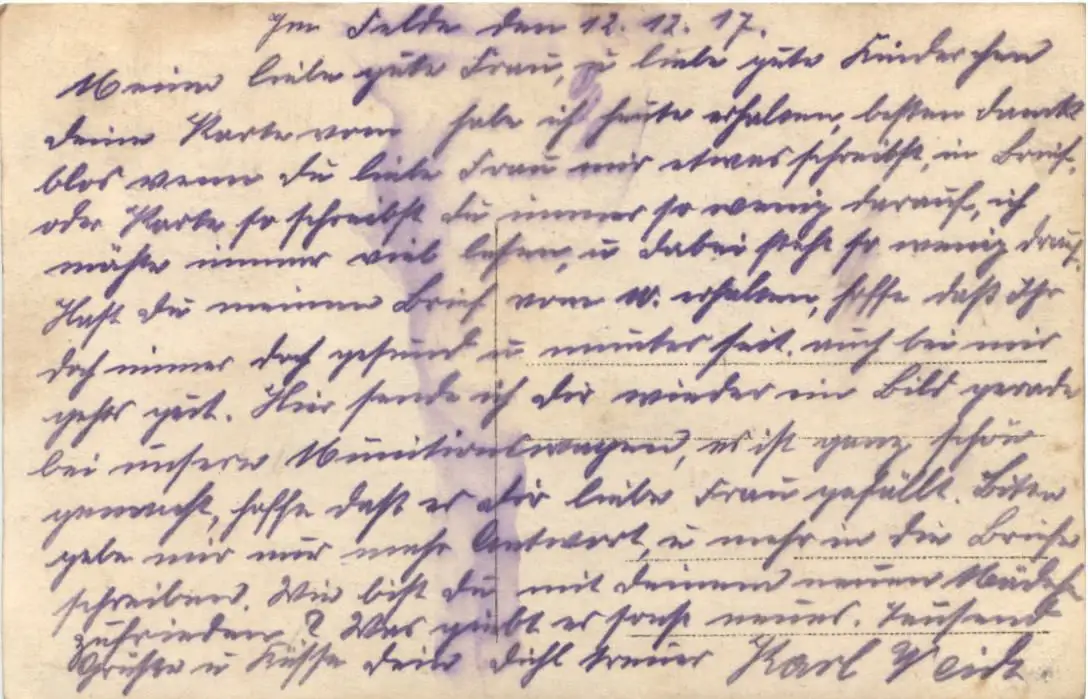 Im Felde den 12. 12. 17.
Meine liebe gute Frau, u liebe gute Kinderchen
deine Karte vom habe ich heute erhalten, besten Dank
blos wenn du liebe Frau mir etwas schreibst, in Brief,
oder Karte so schreibst du immer so wenig darauf, ich
möchte immer viel lesen, u dabei steht so wenig drauf.
Hast du meinen Brief vom 10. erhalten, hoffe daß Ihr
doch immer doch gesund u munter seit. auch bei mir
gehts gut. Hier sende ich dir wieder ein Bild gerade
bei unserem Munitionswagen, es ist ganz schön
gemacht, hoffe daß es dir liebe Frau gefällt. Biten
gebe mir nur mehr Antwort, u mehr in die Briefe
schreiben. Wie bist du mit deinem neuen Mädch
zufrieden? Was giebt es sonst neues. Tausend
Grüsse u Küsse dein treuer Karl